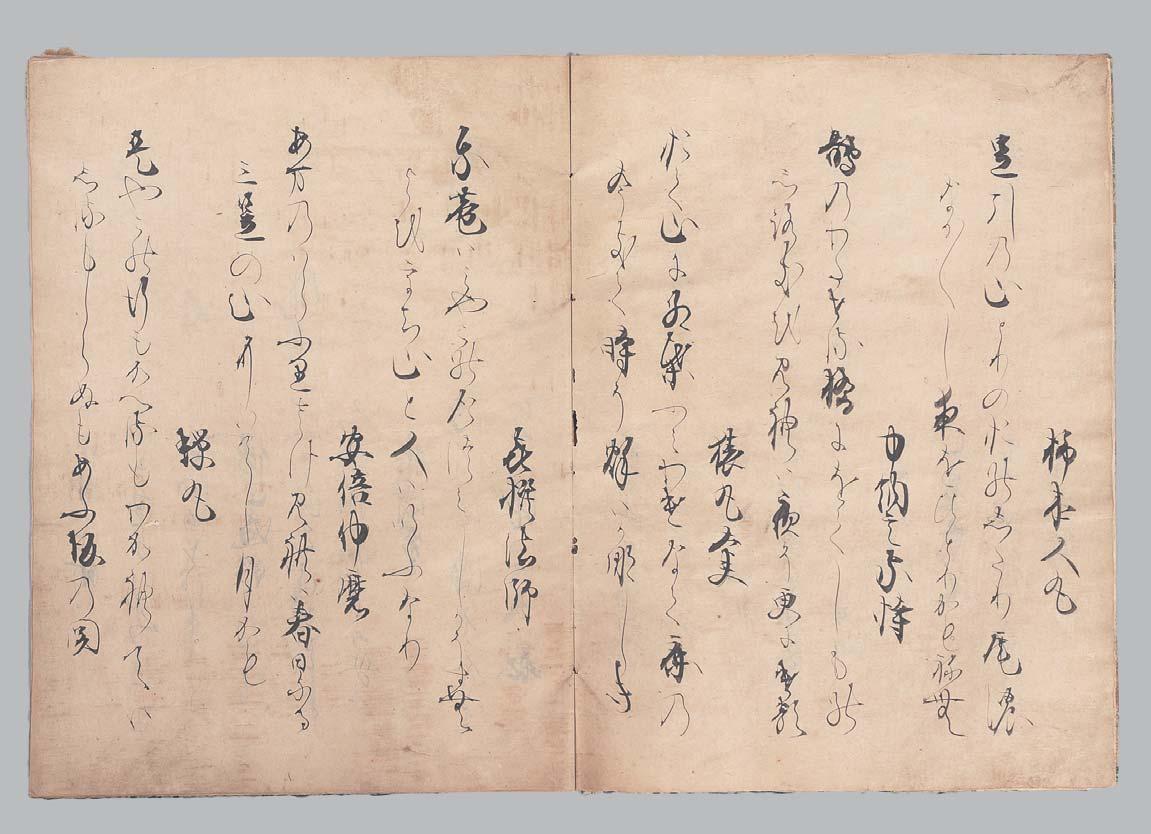 柿本人丸
足引の山とりの尾のしたり尾の
なか/\し夜をひとりかもねむ
中納言家持
鵲のわたせる橋にをくしもの
しろきを見れは夜そ更にける
猿丸大夫
おく山に紅葉ふみわけなく鹿の
声きく時そ秋はかなしき
喜撰法師
我庵はみやこのたつみしかそすむ
よをうち山と人はいふなり
安倍仲麿
あまの原ふりさけ見れは春日なる
三笠の山にいてし月かも
蝉丸
是やこの行もかへるもわかれては
しるもしらぬもあふ坂の関